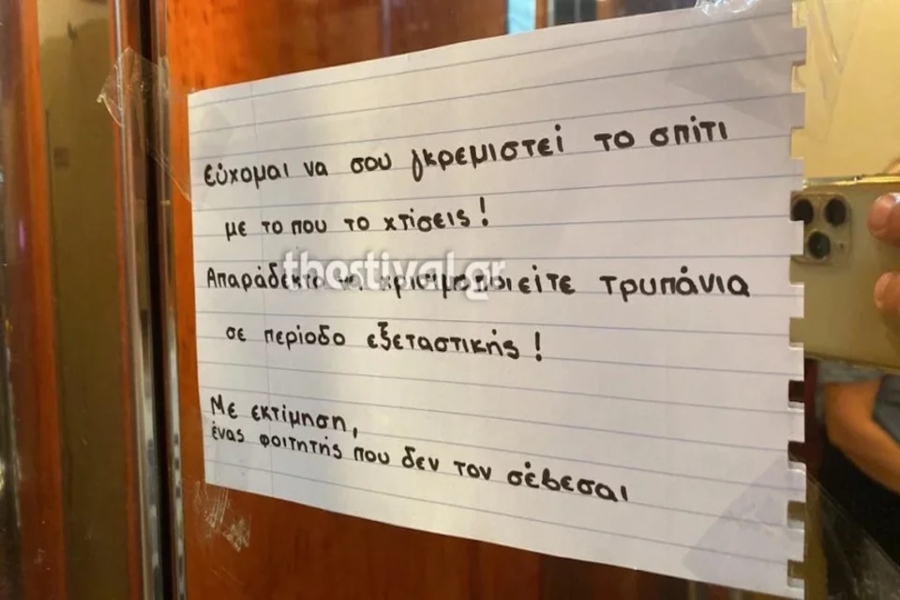 εύχομαι να σου γκρεμιστεί το σπίτι
με το που το χτίσεις!
Απαράδεκτο να χρισιμοποιείτε τρυπάνια
σε περίοδο εξεταστικής!
Με εκτίμηση,
ένας φοιτητής που δεν τον σέβεσαι
thestival.gr